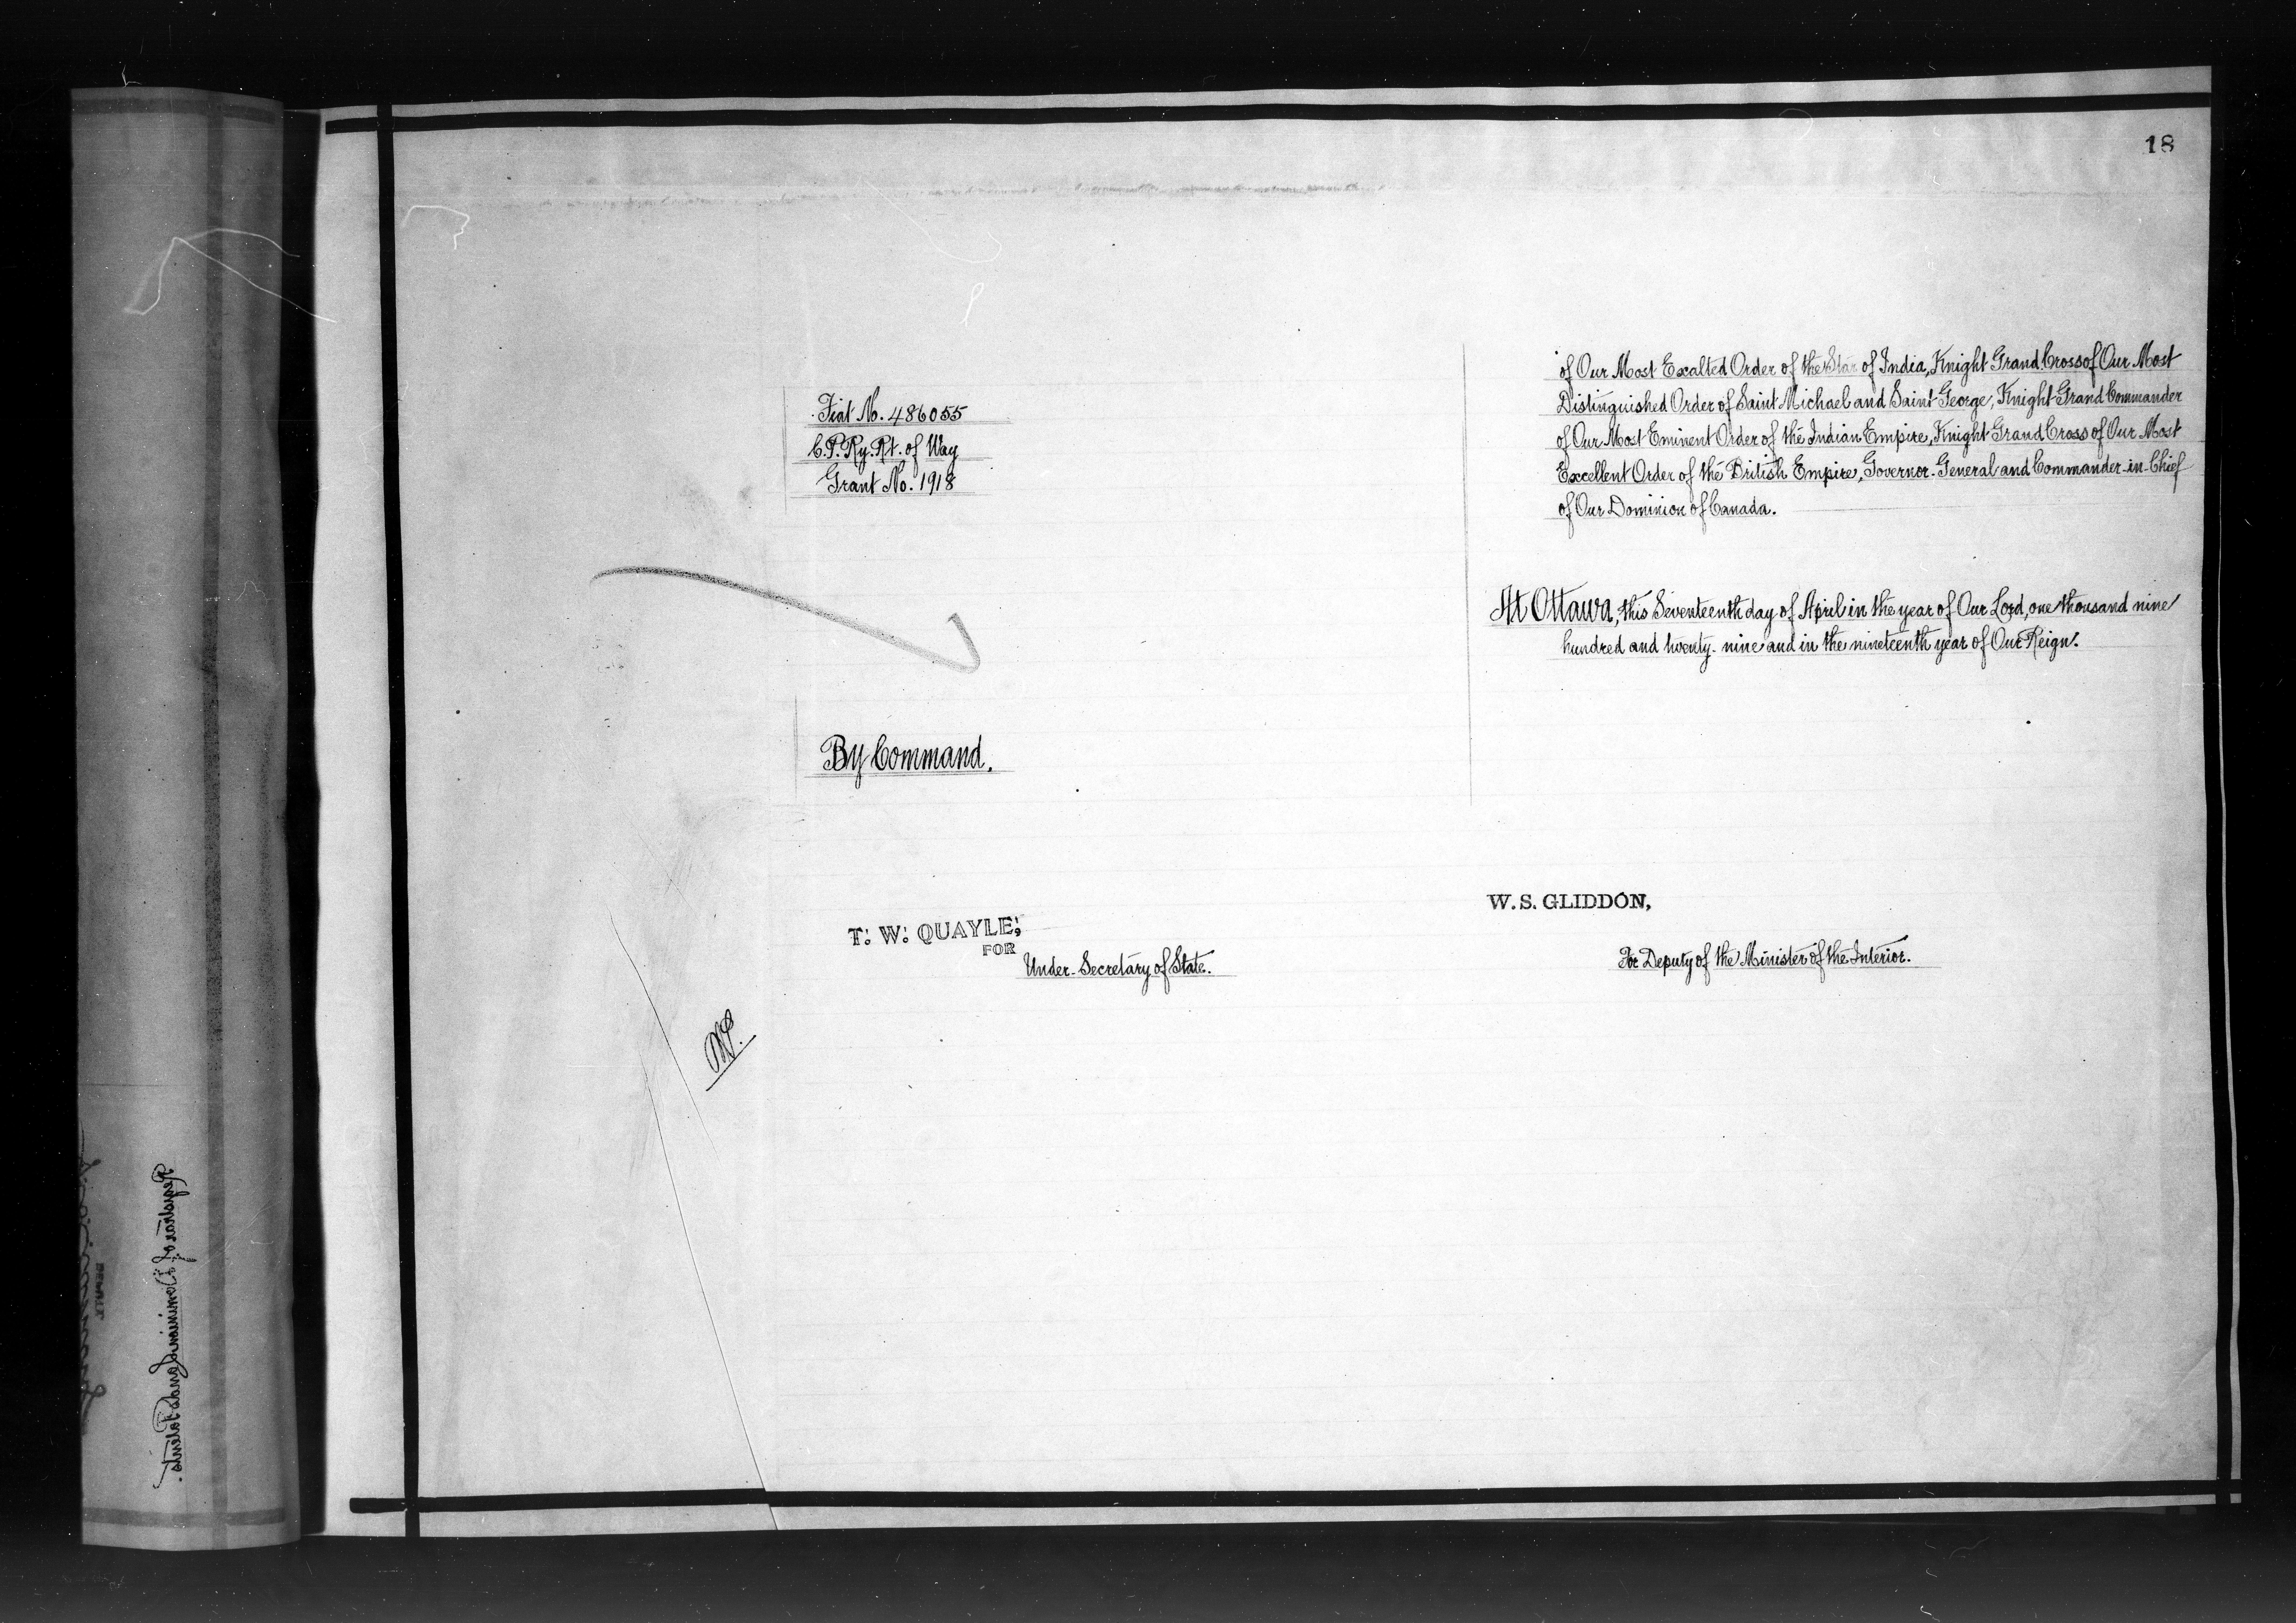 18
Fiat No. 486055
C.P. Ry. Rt. of Way
Grant No. 1918
of Our Most Exalted Order of the Star of India, Knight Grand Cross of Our Most
Distinguished Order of Saint Michael and Saint George, Knight Grand Commander
of Our Most Eminent Order of the Indian Empire, Knight Grand Cross of Our Most
Excellent Order of the British Empire, Governor-General and Commander-in-Chief
of Our Dominion of Canada.
At Ottawa, this Seventeenth day of April in the year of Our Lord, one thousand nine
hundred and twenty-nine and in the nineteenth year of Our Reign.
By Command.
T. W. QUAYLE,
FOR
Under-Secretary of State.
W. S. GLIDDON,
For Deputy of the Minister of the Interior.
Registrar of Dominion Lands Patents.
DEPUTY